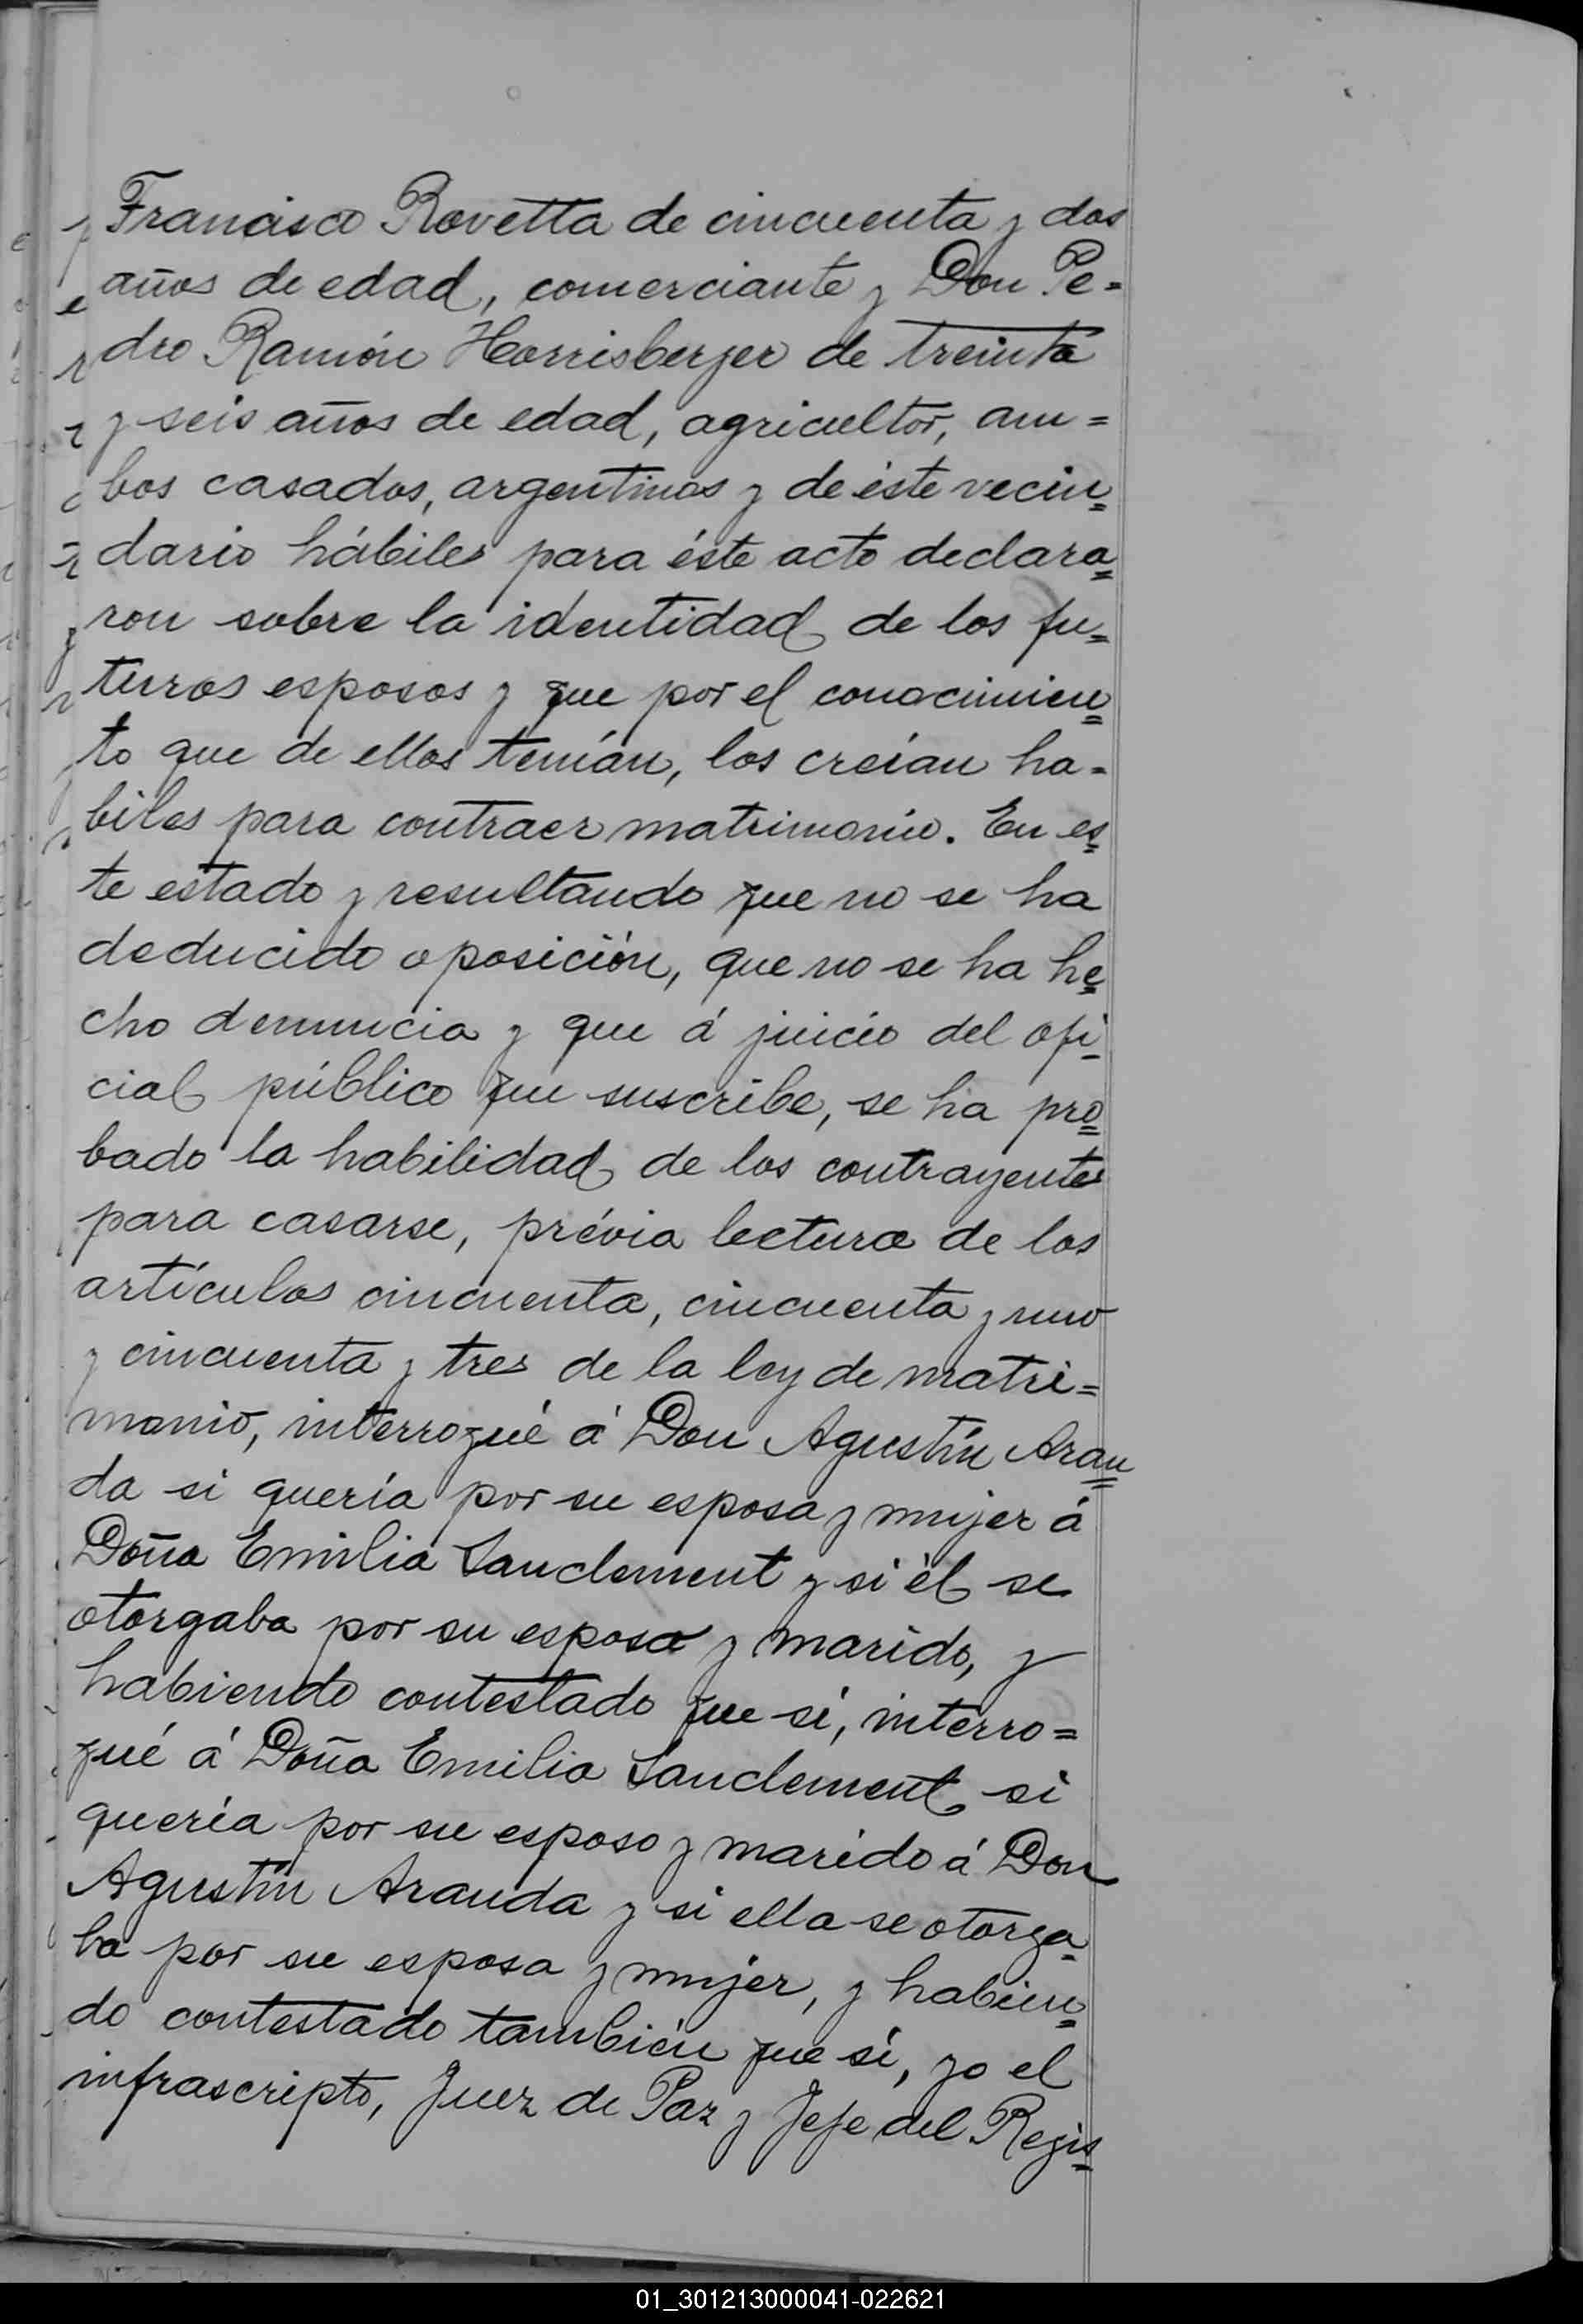 Francisco Rovetta de cincuenta y dos
años de edad, comerciante y Don Pe=
dro Ramón Horrisberger de treinta
y seis años de edad, agricultor, am=
bos casados, argentinos y de éste vecin=
dario hábiles para éste acto declara=
ron sobre la identidad de los fu=
turos esposos y que por el conocimien=
to que de ellos tenían, los creían ha=
biles para contraer matrimonio. En es=
te estado y resultando que no se ha
deducido oposición, que no se ha he=
cho denuncia y que á juicio del ofi=
cial público que suscribe, se ha pro=
bado la habilidad de los contrayentes
para casarse, prévia lectura de los
artículos cincuenta, cincuenta y uno
y cincuenta y tres de la ley de matri=
monio, interrogué á Don Agustín Aran=
da si quería por su esposa y mujer á
Doña Emilia Sanclement y si él se
otorgaba por su esposo y marido, y
habiendo contestado que sí, interro=
gué á Doña Emilia Sanclement si
quería por su esposo y marido á Don
Agustín Aranda y si ella se otorga=
ba por su esposa y mujer, y habien=
do contestado también que sí, yo el
infrascripto, Juez de Paz y Jefe del Regis=
01_301213000041-022621